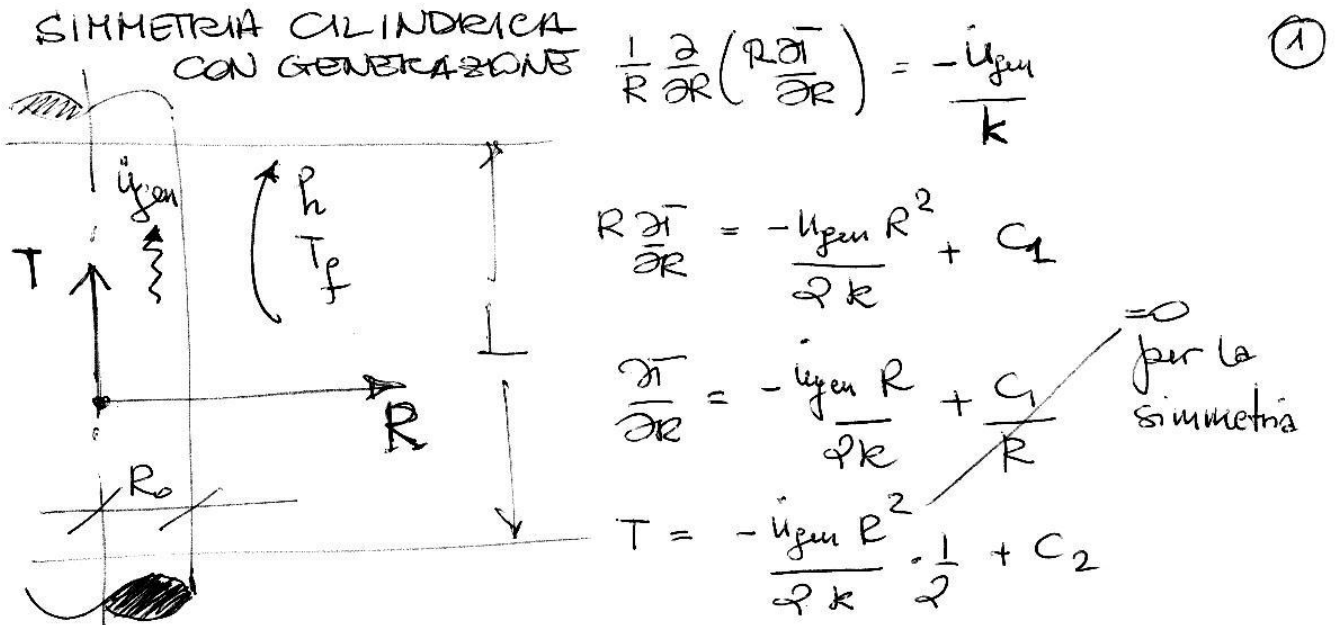 SIMMETRIA CILINDRICA
CON GENERAZIONE
1
1/R ∂/∂R (R ∂T/∂R) = -u̇gen/k
u̇gen
h
Tf
T
R
R₀
L
R ∂T/∂R = -u̇gen R²/2k + C₁
∂T/∂R = -u̇gen R/2k + C₁/R
=0
per la
simmetria
T = -u̇gen R²/2k · 1/2 + C₂